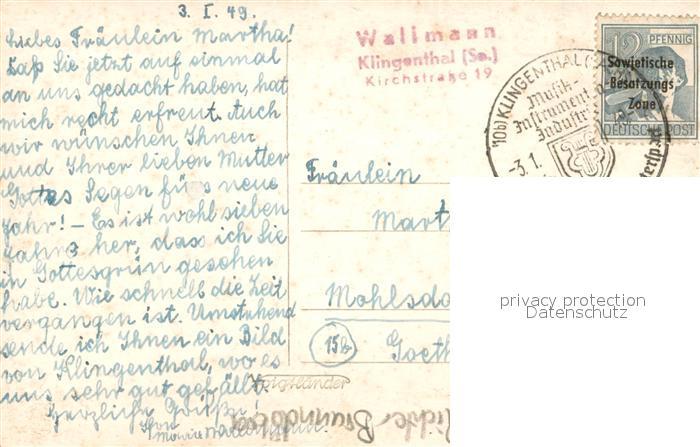 3. I. 49.
Liebes Fräulein Martha!
Daß Sie jetzt auf einmal
an uns gedacht haben, hat
mich recht erfreut. Auch
wir wünschen Ihnen
und Ihrer lieben Mutter
Gottes Segen fürs neue
Jahr! - Es ist wohl sieben
Jahre her, dass ich Sie
in Gottesgrün gesehen
habe. Wie schnell die Zeit
vergangen ist. Umstehend
sende ich Ihnen ein Bild
von Klingenthal, wo es
uns sehr gut gefällt.
Herzliche Grüße!
Wallmann
Klingenthal (Sa.)
Kirchstraße 19
12 PFENNIG
Sowjetische
Besatzungs
Zone
DEUTSCHE POST
(10b) KLINGENTHAL
Musik-
Instrument
Industr
-3.1.
Fräulein
Marth
Mohlsdo
15b
Goeth
Voigtländer
privacy protection
Datenschutz